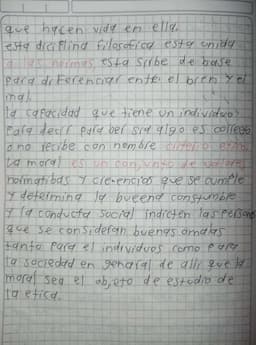 que hacen vida en ella.
esta diciplina filosofica esta unida
a las normas, esta sirbe de base
para diferenciar ente. el bien y el
mal.
la capacidad que tiene un individuo
para decir para ber sia algo es correcto
o no recibe con nombre criterio etico,
La moral es un conjunto de valores
normatibas y creencias que se cumple
y determina la bueena constumbre
y la conducta social indicten las persona
que se consideran buenas omalas
tanto para el individuos como para
la sociedad en genaral de alli que la
moral sea el objeto de estudio de
la etica.